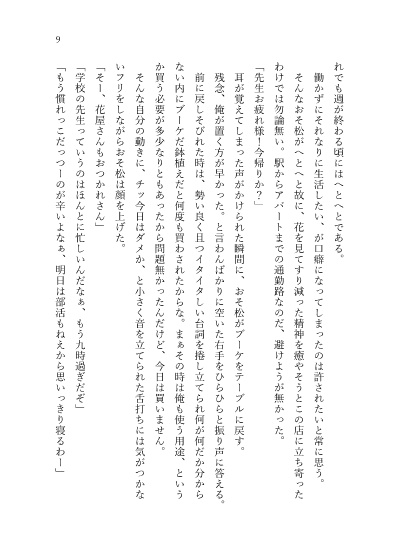 れでも週が終わる頃にはへとへとである。
働かずにそれなりに生活したい、が口癖になってしまったのは許されたいと常に思う。
そんなおそ松がへとへと故に、花を見てすり減った精神を癒やそうとこの店に立ち寄った
わけでは勿論無い。駅からアパートまでの通勤路なのだ、避けようが無かった。
「先生お疲れ様！今帰りか？」
耳が覚えてしまった声がかけられた瞬間に、おそ松がブーケをテーブルに戻す。
残念、俺が置く方が早かった。と言わんばかりに空いた右手をひらひらと振り声に答える。
前に戻しそびれた時は、勢い良く且つイタイタしい台詞を捲し立てられ何が何だか分から
ない内にブーケだ鉢植えだと何度も買わされたからな。まぁその時は俺も使う用途、という
か買う必要が多少なりともあったから問題無かったんだけど、今日は買いません。
そんな自分の動きに、チッ今日はダメか、と小さく音を立てられた舌打ちには気がつかな
いフリをしながらおそ松は顔を上げた。
「そー、花屋さんもおつかれさん」
「学校の先生っていうのはほんとに忙しいんだなぁ、もう九時過ぎだぞ」
「もう慣れっこだっつーのが辛いよなぁ、明日は部活もねえから思いっきり寝るわー」
9